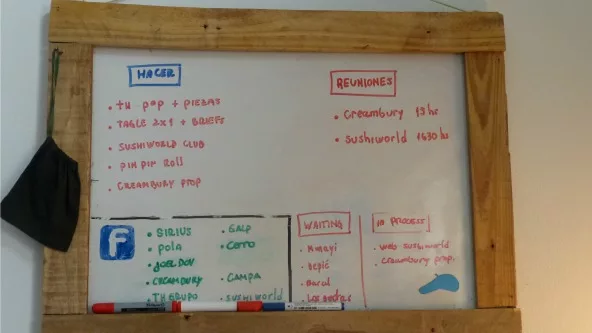 HACER
• TH pop + PIEZAS
• TABLE 2x1 + BRIEFS
• SUSHIWORLD CLUB
• PIN PIN Roll
• CREAMBURY PROP
REUNIONES
• Creambury 19 hs
• Sushiworld 1630 hs
F
• SIRIUS
• Pola
• JOEL DOV
• CREAMBURY
• TH GRUPO
• GALP
• COTO
• CAMPA
• SUSHIWORLD
WAITING
• Amayi
• Depic
• Baral
• Los
IN PROCESS
• Web sushiworld
• Creambury prop.